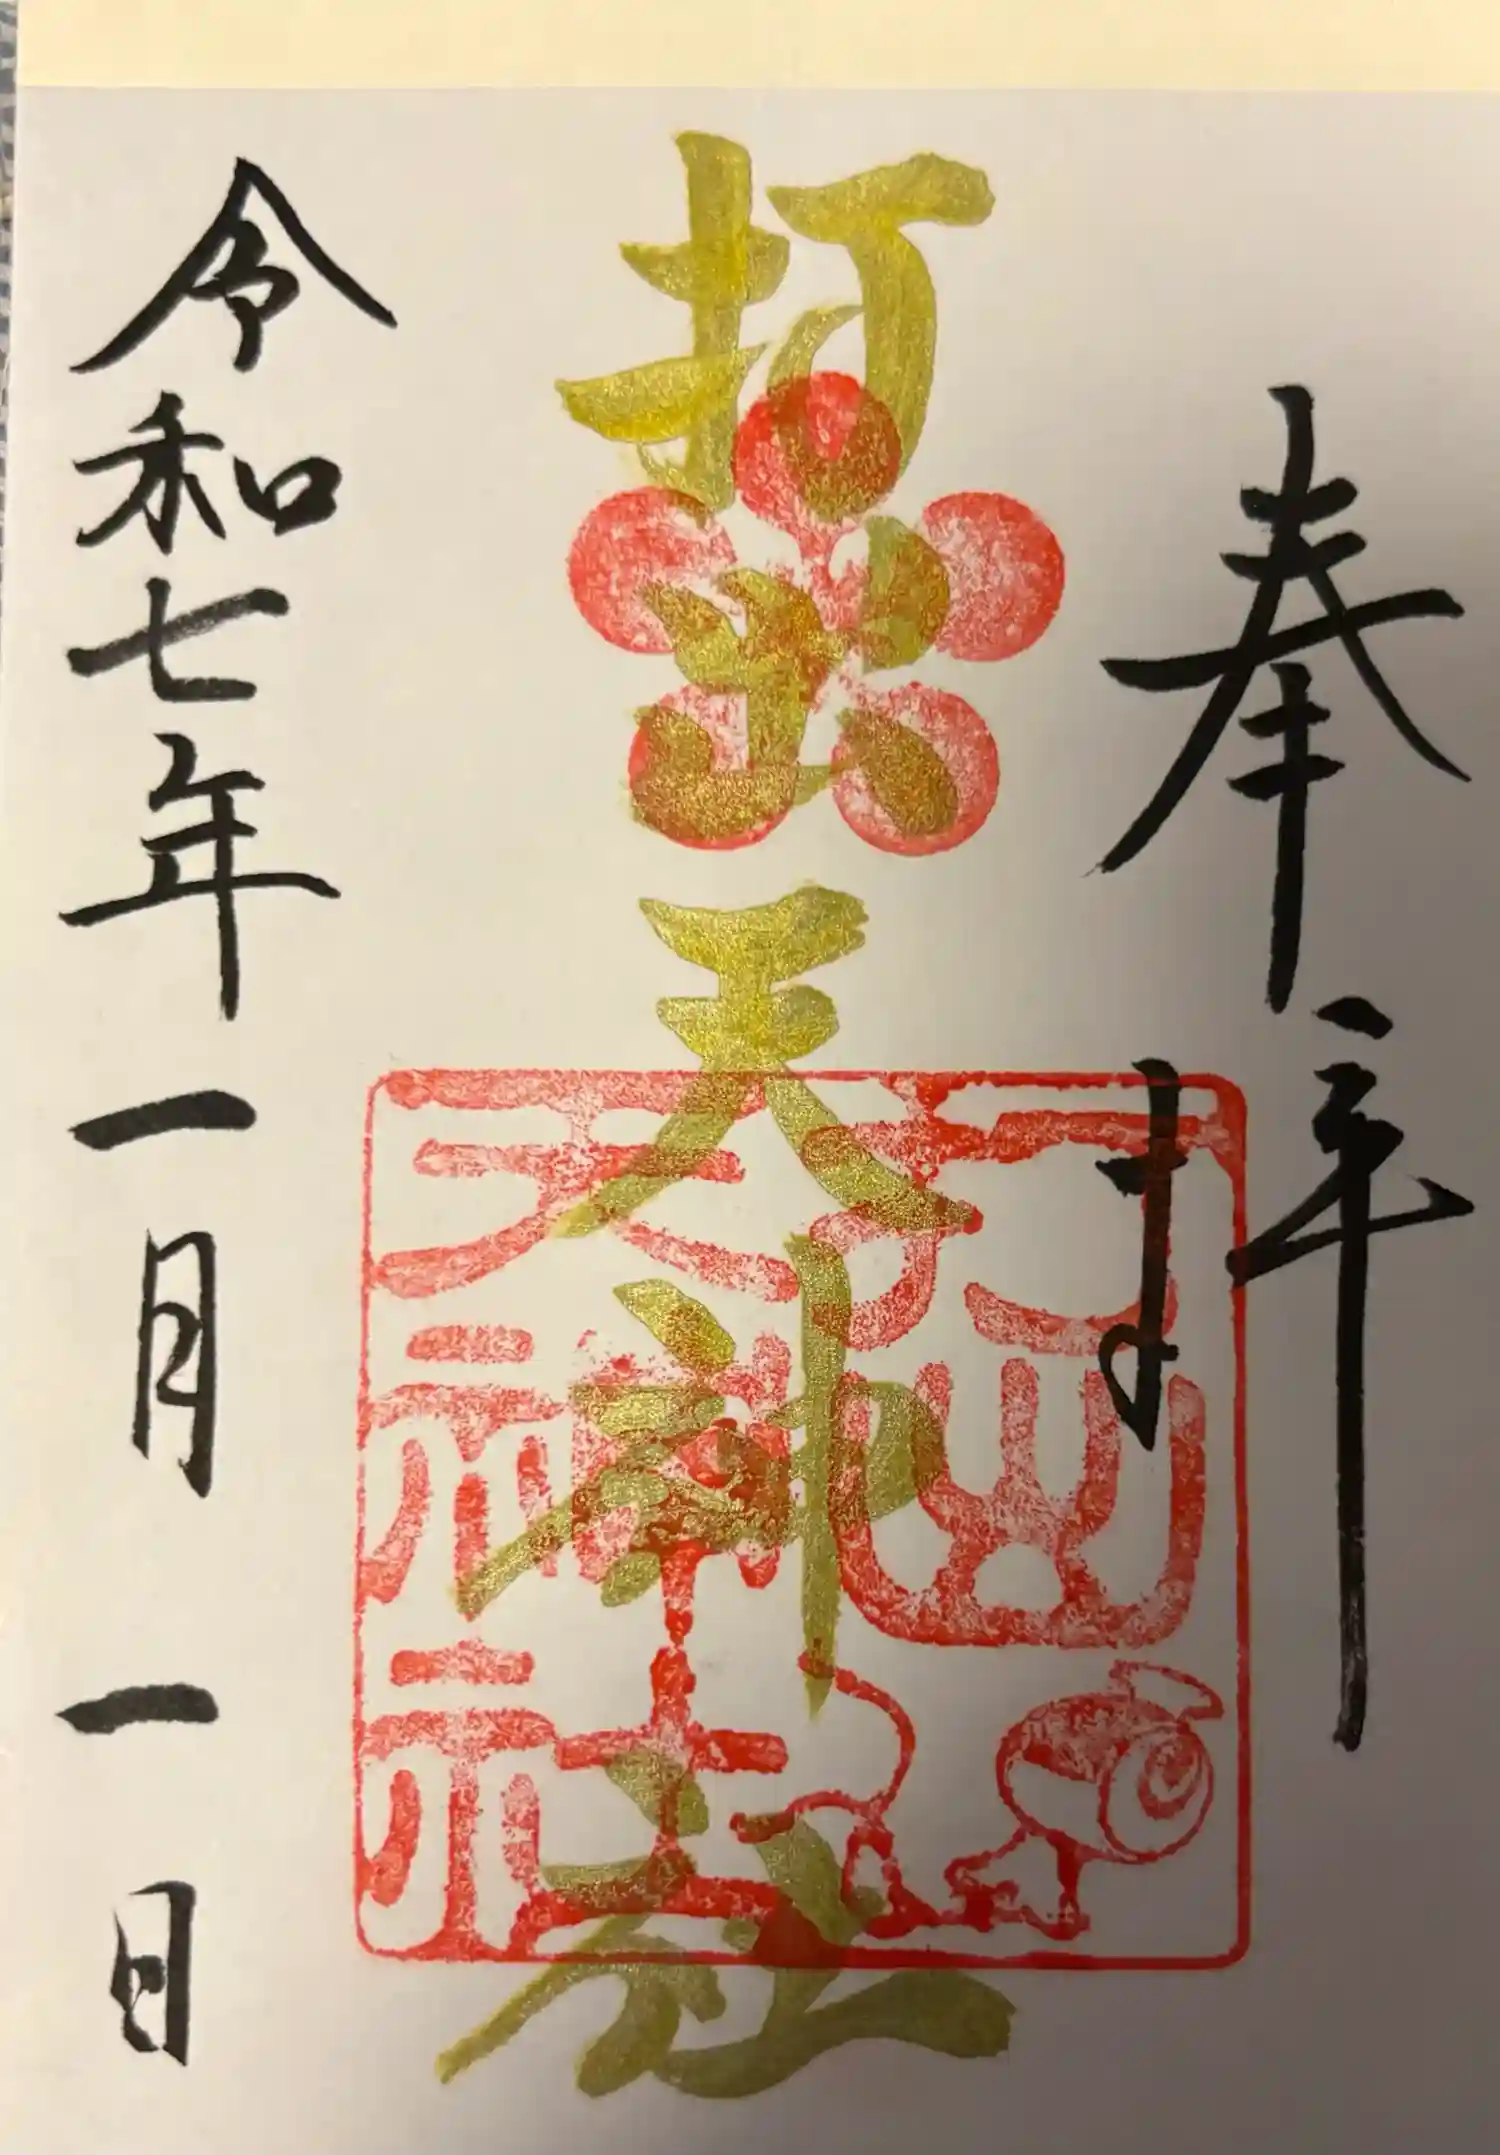 奉拝
打出天神社
打出天神社
令和七年一月一日